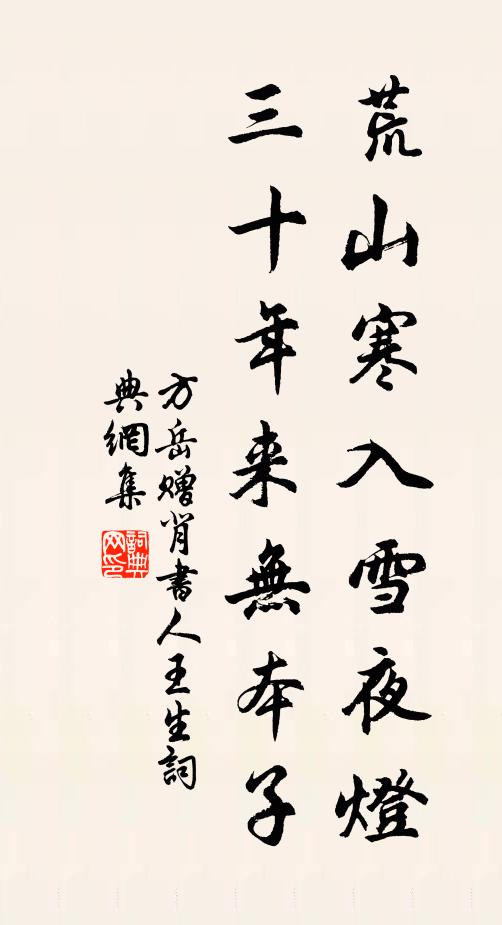 荒山寒入雪夜燈
三十年来無本子
方岳赠肖書人王生詞
典網集
詞典
网印